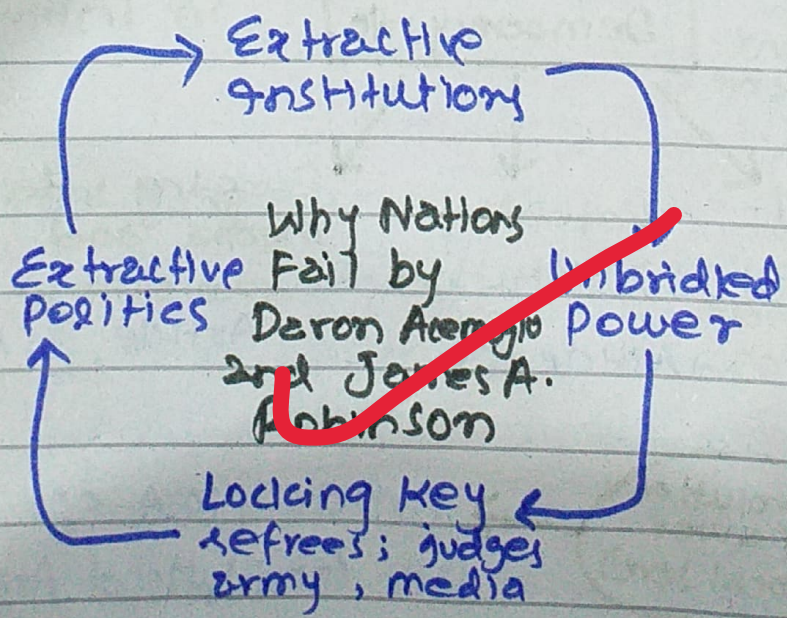 Extractive
Institutions
Why Nations
Fail by
Daron Acemoglu
and James A.
Robinson
Unbridked
Power
Locking Key
refrees; judges
army, media
Extractive
Politics